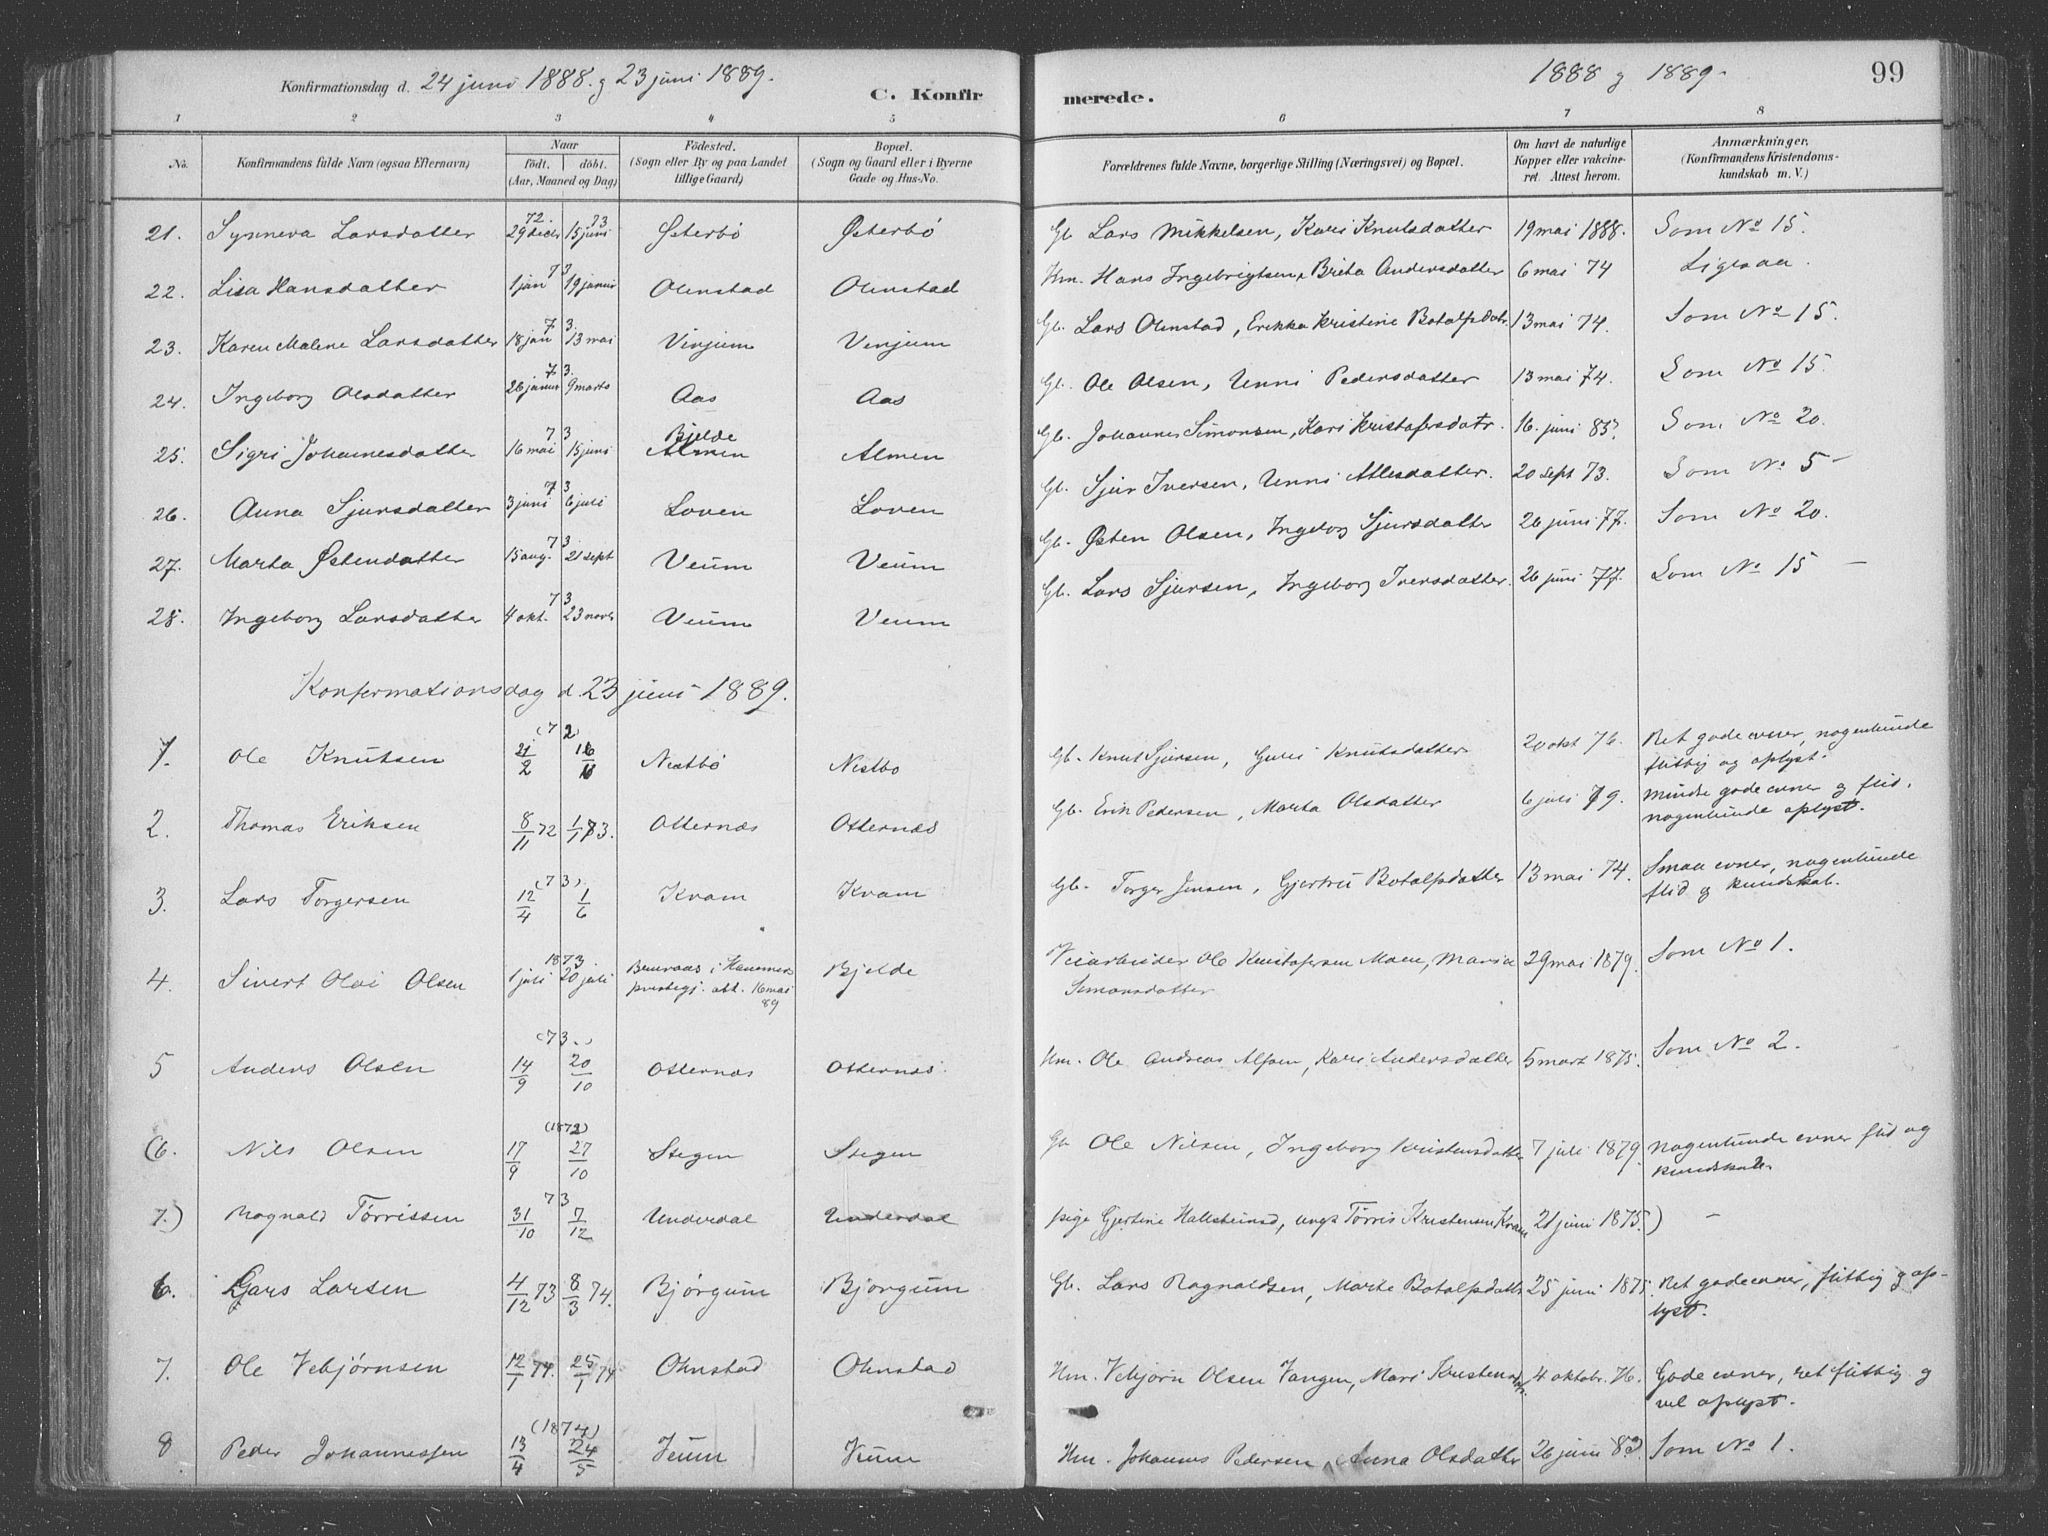 Konfirmationsdag d. 24 juni 1888. g 23 juni 1889.
C. Konfir
merede.
1888 g 1889.
99
1 2 3 4 5 6 7 8
No. Konfirmandens fulde Navn (ogsaa Efternavn) Naar født. døbt. (Aar, Maaned og Dag) Fødested. (Sogn eller By og paa Landet tillige Gaard) Bopæl. (Sogn og Gaard eller i Byerne Gade og Hus-No. Forældrenes fulde Navne, borgerlige Stilling (Næringsvei) og Bopæl. Om havt de naturlige Kopper eller vakcineret. Attest herom. Anmærkninger, (Konfirmandens Kristendomskundskab m. V.)
21. Synneva Larsdatter 72. 29 decbr 73 15 juni Østerbö Østerbö Gb. Lars Mikkelsen, Kari Knutsdatter 19 mai 1888. Som No 15.
22. Lisa Hansdatter 73 1 jan 19 januar Ohnstad Ohnstad Hm. Hans Ingebrigtsen, Brita Andersdatter 6 mai 74 Ligesaa.
23. Karen Malene Larsdatter 73. 18 jan 13 mai Vinjum Vinjum Gb. Lars Ohnstad, Erikka Kristine Botolfsdatr. 13 mai 74. Som No 15.
24. Ingeborg Olsdatter 73. 26 januar 9 marts Aas Aas Gb. Ole Olsen, Unni Pedersdatter 13 mai 74. Som No 15.
25. Sigri Johannesdatter 73 16 mai 15 juni Bjelde Almen Almen Gb. Johannes Simonsen, Kari Kristofersdatr. 16. juni 83. Som No 20.
26. Anna Sjursdatter 73 3 juni 6 juli Loven Loven Gb. Sjur Iversen, Unni Atlesdatter. 20 sept 73. Som No 5 -
27. Marta Østendatter 73 15 aug. 21 sept Veum Veum Gb. Østen Olsen, Ingeborg Sjursdatter 26 juni 77. Som No 20.
28. Ingeborg Larsdatter 73 4 okt. 23 novbr Veum Veum Gb. Lars Sjursen, Ingeborg Iversdatter. 26 juni 77. Som No 15 -
Konfermationsdag d. 23 juni 1889.
1. Ole Knutsen (72) 21/2 16 Nestbö Nestbo Gb. Knut Sjursen, Guri Knutsdatter 20 okt 76. Ret gode evner, nogenlunde
flittig og oplyst.
2. Thomas Eriksen 8/11 72 1/1 73. Otternæs Otternæs Gb. Erik Pedersen, Marta Olsdatter 6 juli 79. Mindre gode evner g flid,
nogenlunde oplyst.
3. Lars Torgersen (73) 12/4 1/6 Kvam Kvam Gb. Torger Jensen, Gjertru Botolfsdatter 13 mai 74. Smaa evner, nogenlunde
flid g kundskab.
4. Sivert Olai Olsen 1873 1 juli 20 juli i prestegj. att. 16 mai 89 Bjelde Veiarbeider Ole Kristofersen Moen, Maria 29 mai 1879. Som No 1.
Simonsdatter
5 Anders Olsen (73.) 14/9 20/10 Otternæs Otternæs Hm. Ole Andreas Alfsen, Kari Andersdatter 5 marz 1875. Som No 2.
(6. Nils Olsen (1872) 17/9 27/10 Stegen Stegen Gb. Ole Nilsen, Ingeborg Kristensdatter 7 juli 1879 nogenlunde evner flid og
kundskab.
7.) Ragnald Tørrissen 73 31/10 7/12 Underdal Underdal pige Gjertine Hallsteinsd, ungk Tørris Kristensen Kvam 21 juni 1875.) -
6. Lars Larsen 4/12 73 8/3 74. Bjørgum Bjorgum Gb. Lars Ragnaldsen, Marte Botolfsdattr 25 juni 1875 Ret gode evner, flittig g op-
lyst.
7. Ole Vebjørnsen 12/1 74. 25/1 74 Ohnstad Ohnstad Hm. Vebjørn Olsen Vangen, Mari Kristensdtr 4 oktobr. 76. Gode evner, ret flittig g
vel oplyst.
8 Peder Johannessen (1874) 13/4 24/5 Veum Veum Hm. Johannes Pedersen, Anna Olsdatter 26 juni 83. Som No 1.